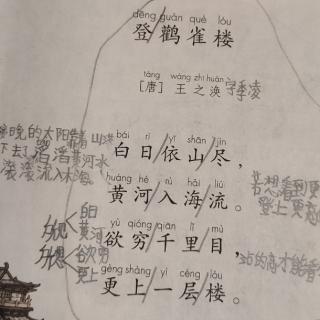 dēng guàn què lóu
登鹳雀楼
táng wáng zhī huàn
[唐] 王之涣 字季凌
bái rì yī shān jìn
白日依山尽，
huáng hé rù hǎi liú
黄河入海流。
yù qióng qiān lǐ mù
欲穷千里目，
gèng shàng yì céng lóu
更上一层楼。
晚的太阳靠着山
下去了滔滔黄河水
滚滚流入
若想看到更
登上更高
的高才能看
白日
黄河
欲穷
更上